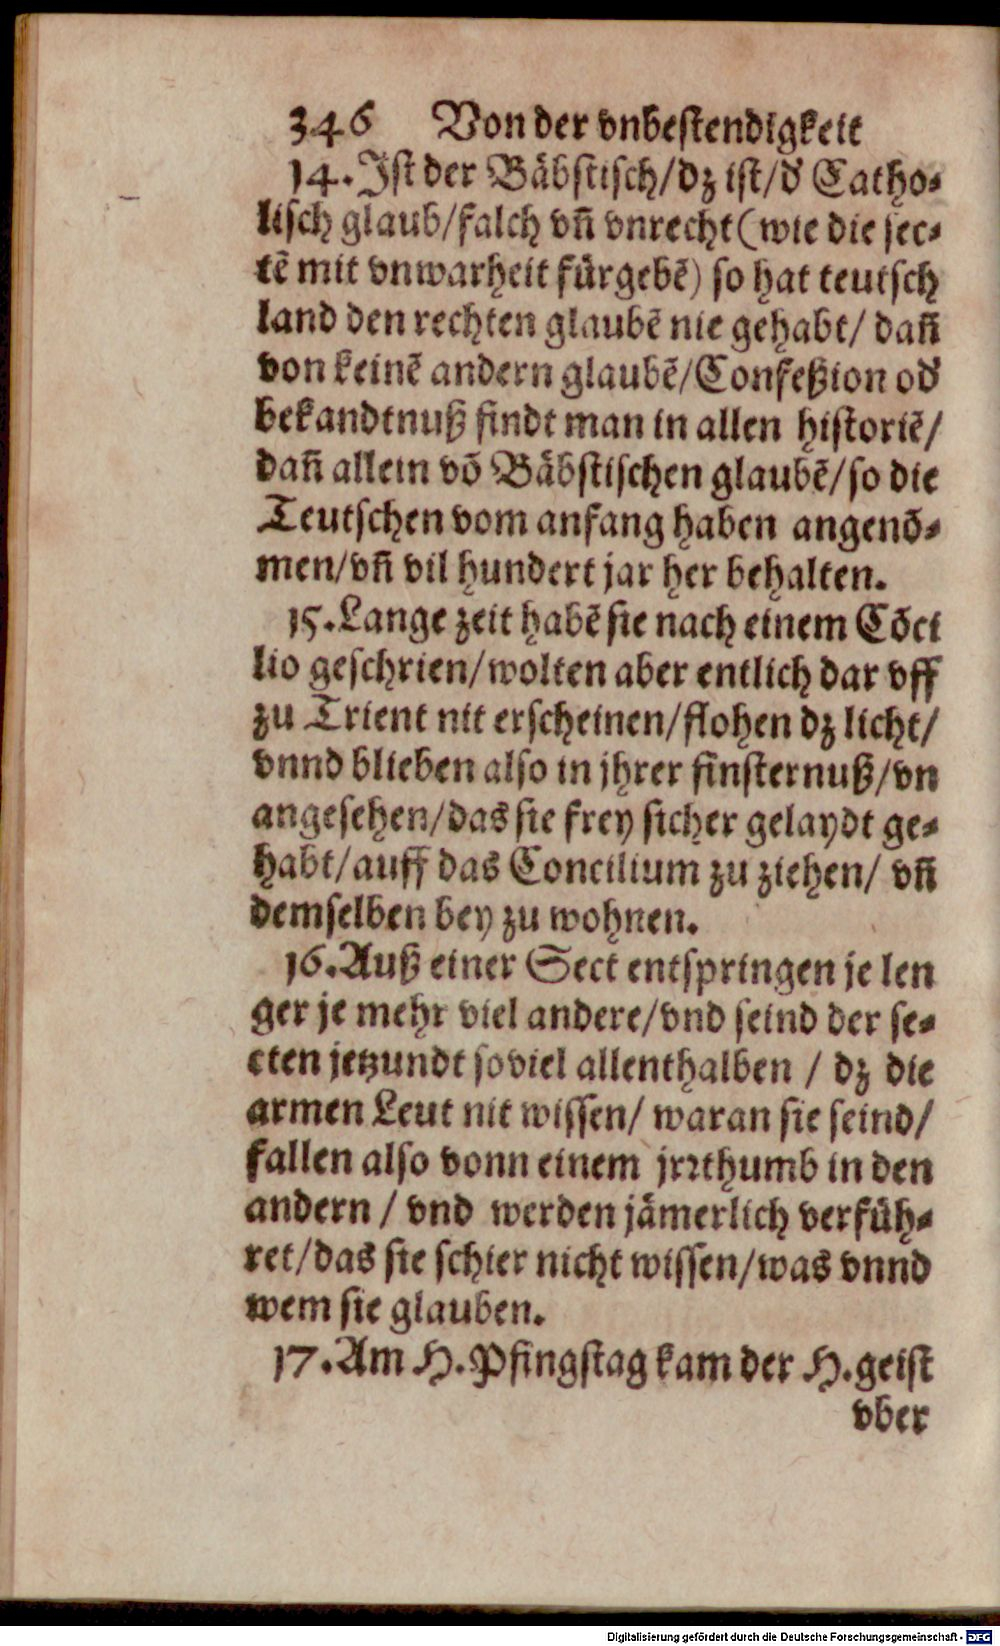 346 Von der vnbestendigkeit
14. Ist der Bäbstisch/dz ist/d̕ Catho-
lisch glaub/falch vñ vnrecht (wie die sec-
tẽ mit vnwarheit fürgebẽ) so hat teutsch
land den rechten glaubẽ nie gehabt/ dañ
von keinẽ andern glaubẽ/Confeßion od̕
bekandtnuß findt man in allen historiẽ/
dañ allein võ Bäbstischen glaubẽ/so die
Teutschen vom anfang haben angenõ-
men/vñ vil hundert jar her behalten.
15. Lange zeit habẽ sie nach einem Cõci
lio geschrien/wolten aber entlich dar vff
zu Trient nit erscheinen/flohen dz licht/
vnnd blieben also in jhrer finsternuß/vn
angesehen/das sie frey sicher gelaydt ge-
habt/auff das Concilium zu ziehen/ vñ
demselben bey zu wohnen.
16. Auß einer Sect entspringen je len
ger je mehr viel andere/vnd seind der se-
cten jetzundt soviel allenthalben / dz die
armen Leut nit wissen/ waran sie seind/
fallen also vonn einem jrꝛthumb in den
andern / vnd werden jämerlich verfüh-
ret/das sie schier nicht wissen/was vnnd
wem sie glauben.
17. Am H. Pfingstag kam der H. geist
vber
Digitalisierung gefördert durch die Deutsche Forschungsgemeinschaft - DFG